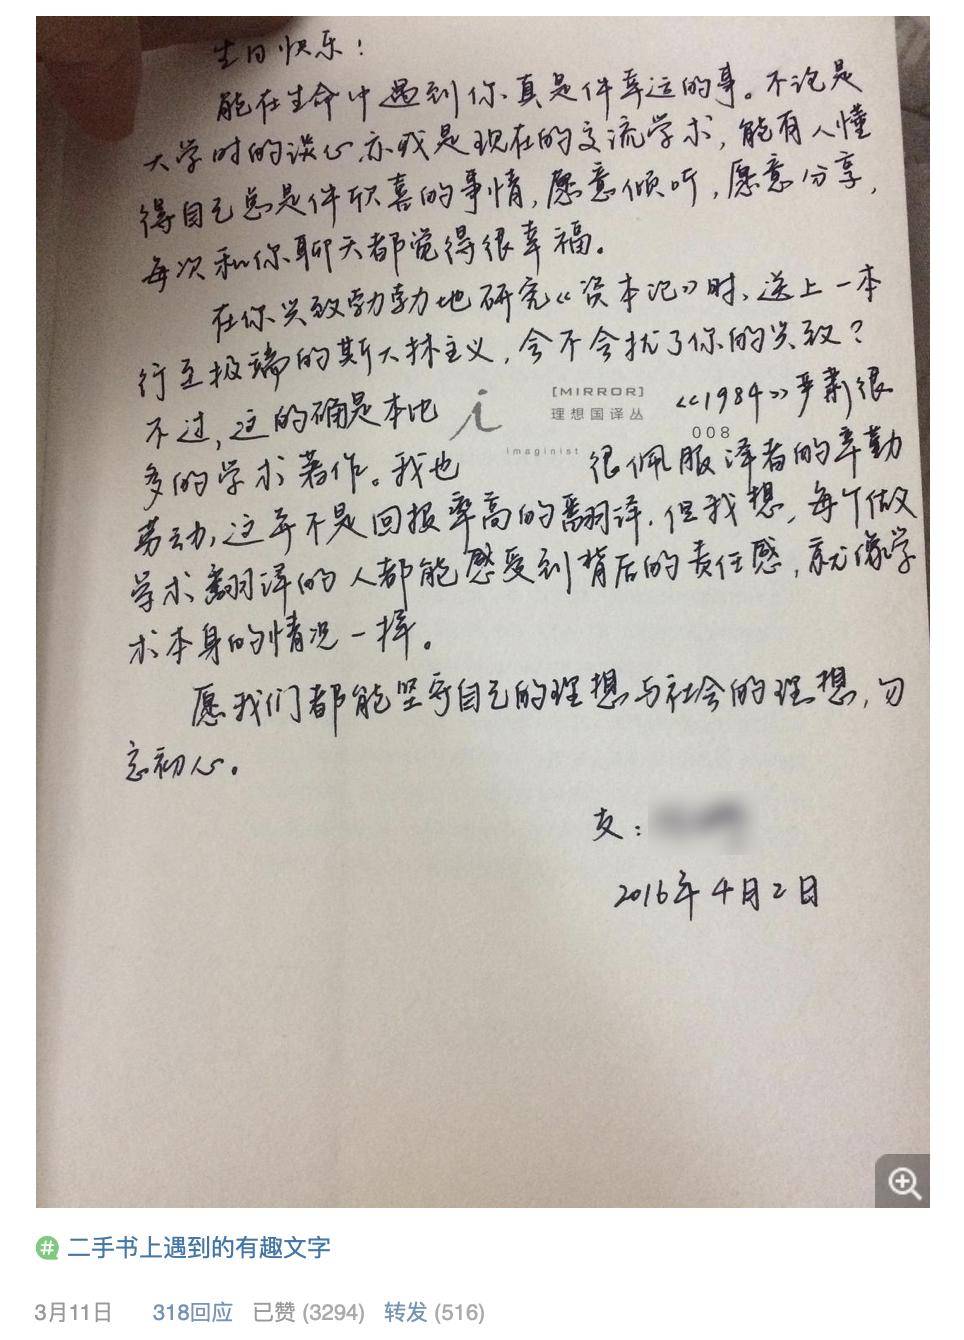 生日快乐！
能在生命中遇到你真是件幸运的事。不论是
大学时的谈心亦或是现在的交流学术，能有人懂
得自己总是件欣喜的事情，愿意倾听，愿意分享，
每次和你聊天都觉得很幸福。
在你兴致勃勃地研究《资本论》时，送上一本
行至极端的斯大林主义，会不会扰了你的兴致？
不过，这的确是本比《1984》严肃很
多的学术著作。我也很佩服译者的辛勤
劳动，这并不是回报率高的翻译，但我想，每个做
学术翻译的人都能感受到背后的责任感，就像学
术本身的情况一样。
愿我们都能坚守自己的理想与社会的理想，勿
忘初心。
友：
2016年4月2日
[MIRROR]
理想国译丛
008
imaginist
二手书上遇到的有趣文字
3月11日 318回应 已赞 (3294) 转发 (516)